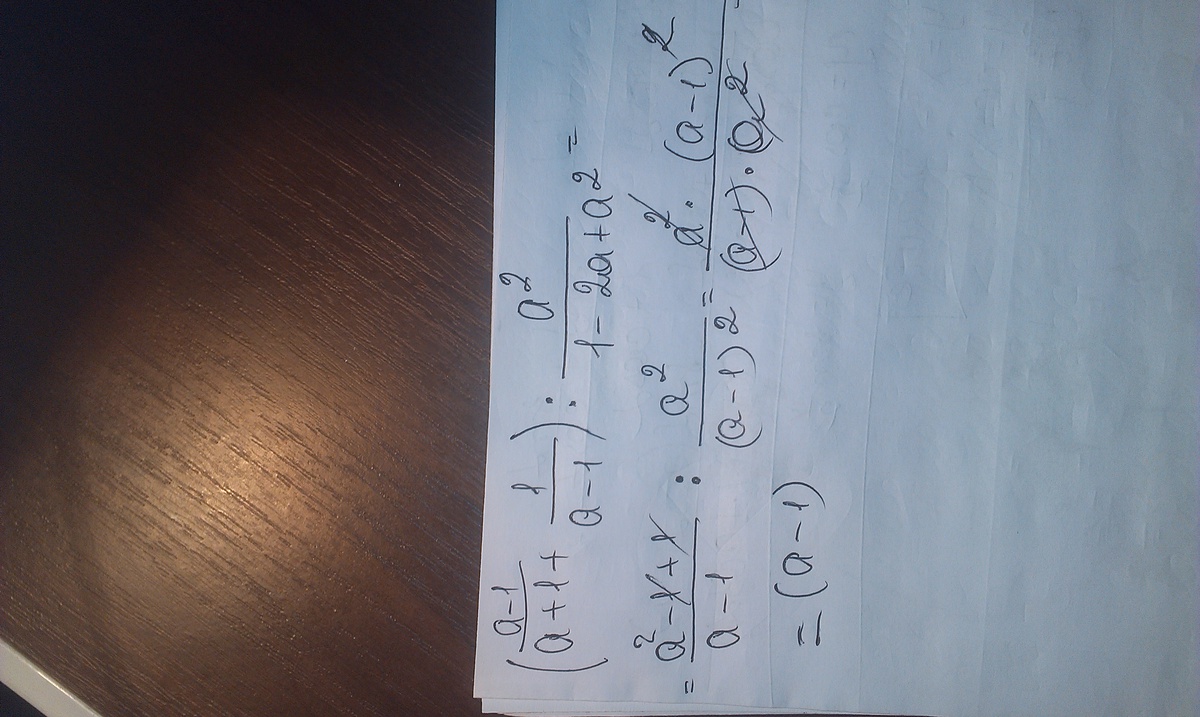 (a-1/a+1+1/a-1) : a²/1-2a+a² =
= a²-1+1/a-1 : a²/(a-1)² = a²·(a-1)²/(a-1)·a² =
= (a-1)